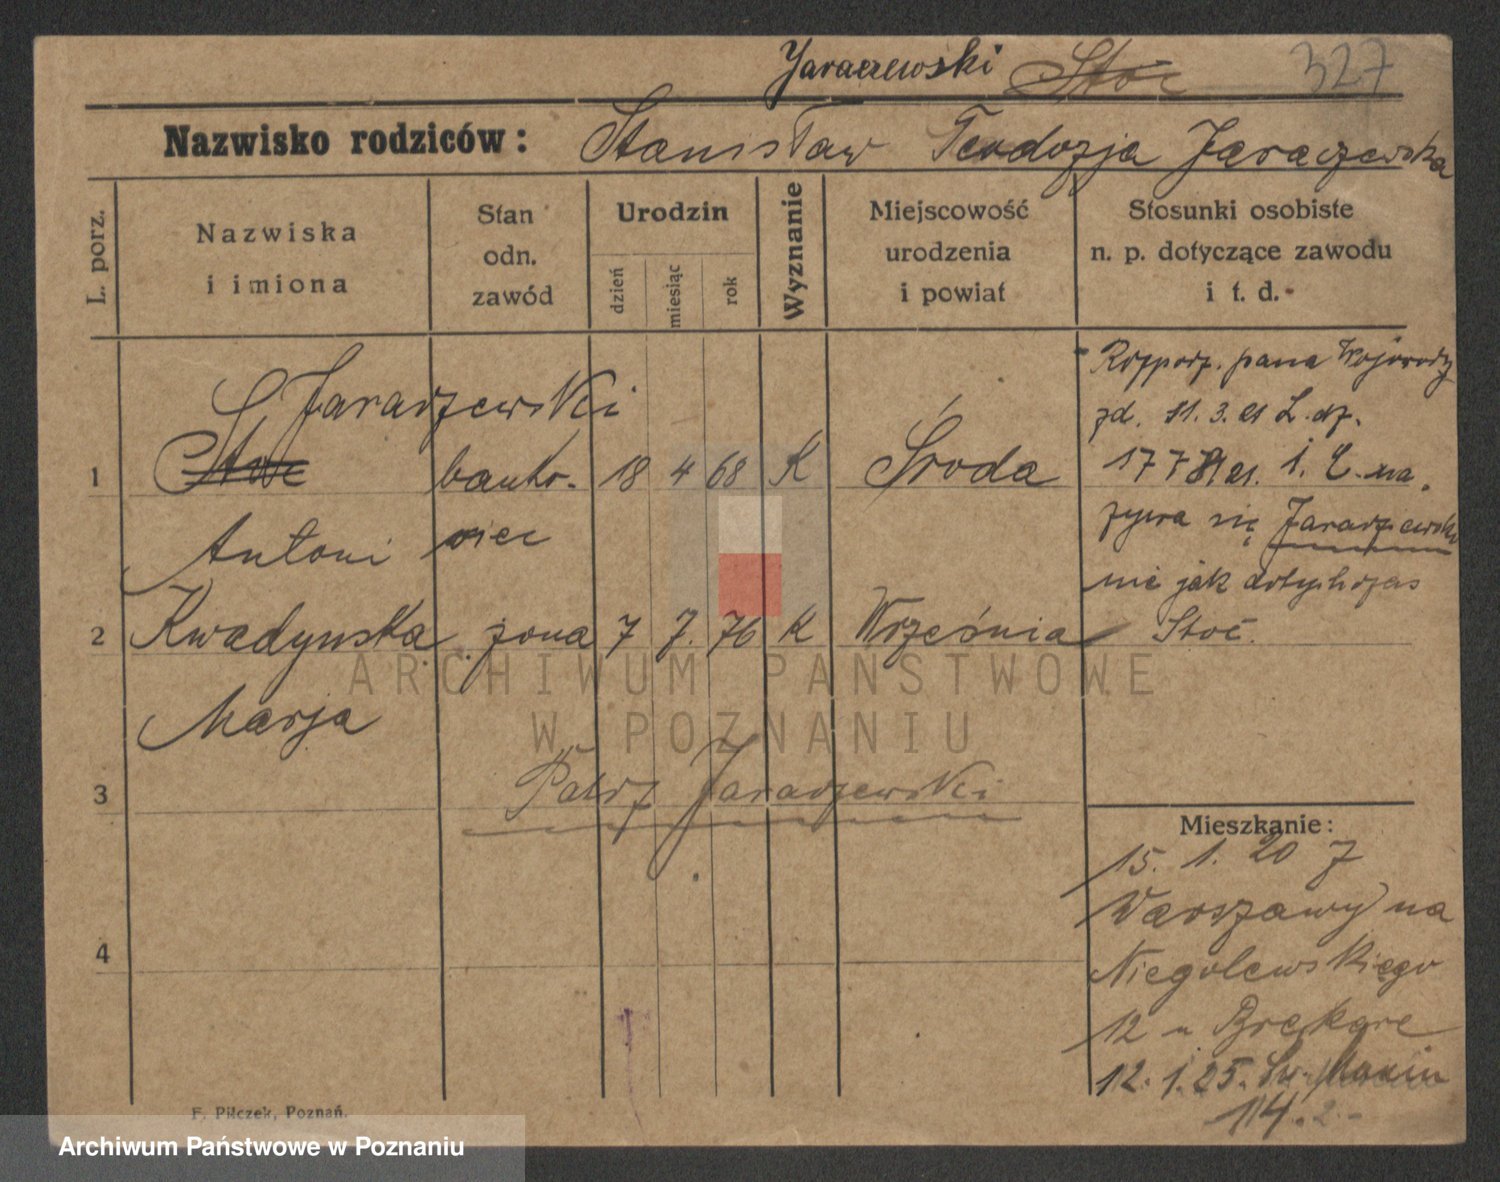 Jaraczewski Stoc 327
Nazwisko rodziców: Stanisław Teodozja Jaraczewska
L. porz.
Nazwiska i imiona
Stan odn. zawód
Urodzin
dzień miesiąc rok
Wyznanie
Miejscowość urodzenia i powiat
Stosunki osobiste n. p. dotyczące zawodu i t. d.
Jaraczewski
1 Stoc banko- 18 4 68 K Środa
Antoni wiec
2 Kwadynska żona 7 7. 76 K Września
Marja
3 Patrz Jaraczewski
4
Rozporz. pana Wojewody
zd. 11.3.21 L. dz.
i. L. na
zywa się Jaraczewski
nie jak dotychczas
Stoc.
Mieszkanie:
15. 1. 20 z
Warszawy na
Niegolewskiego
12 u
12. 1. 25. Św. Marcin
14.
F. Pilczek, Poznań.
ARCHIWUM PAŃSTWOWE
W POZNANIU
Archiwum Państwowe w Poznaniu